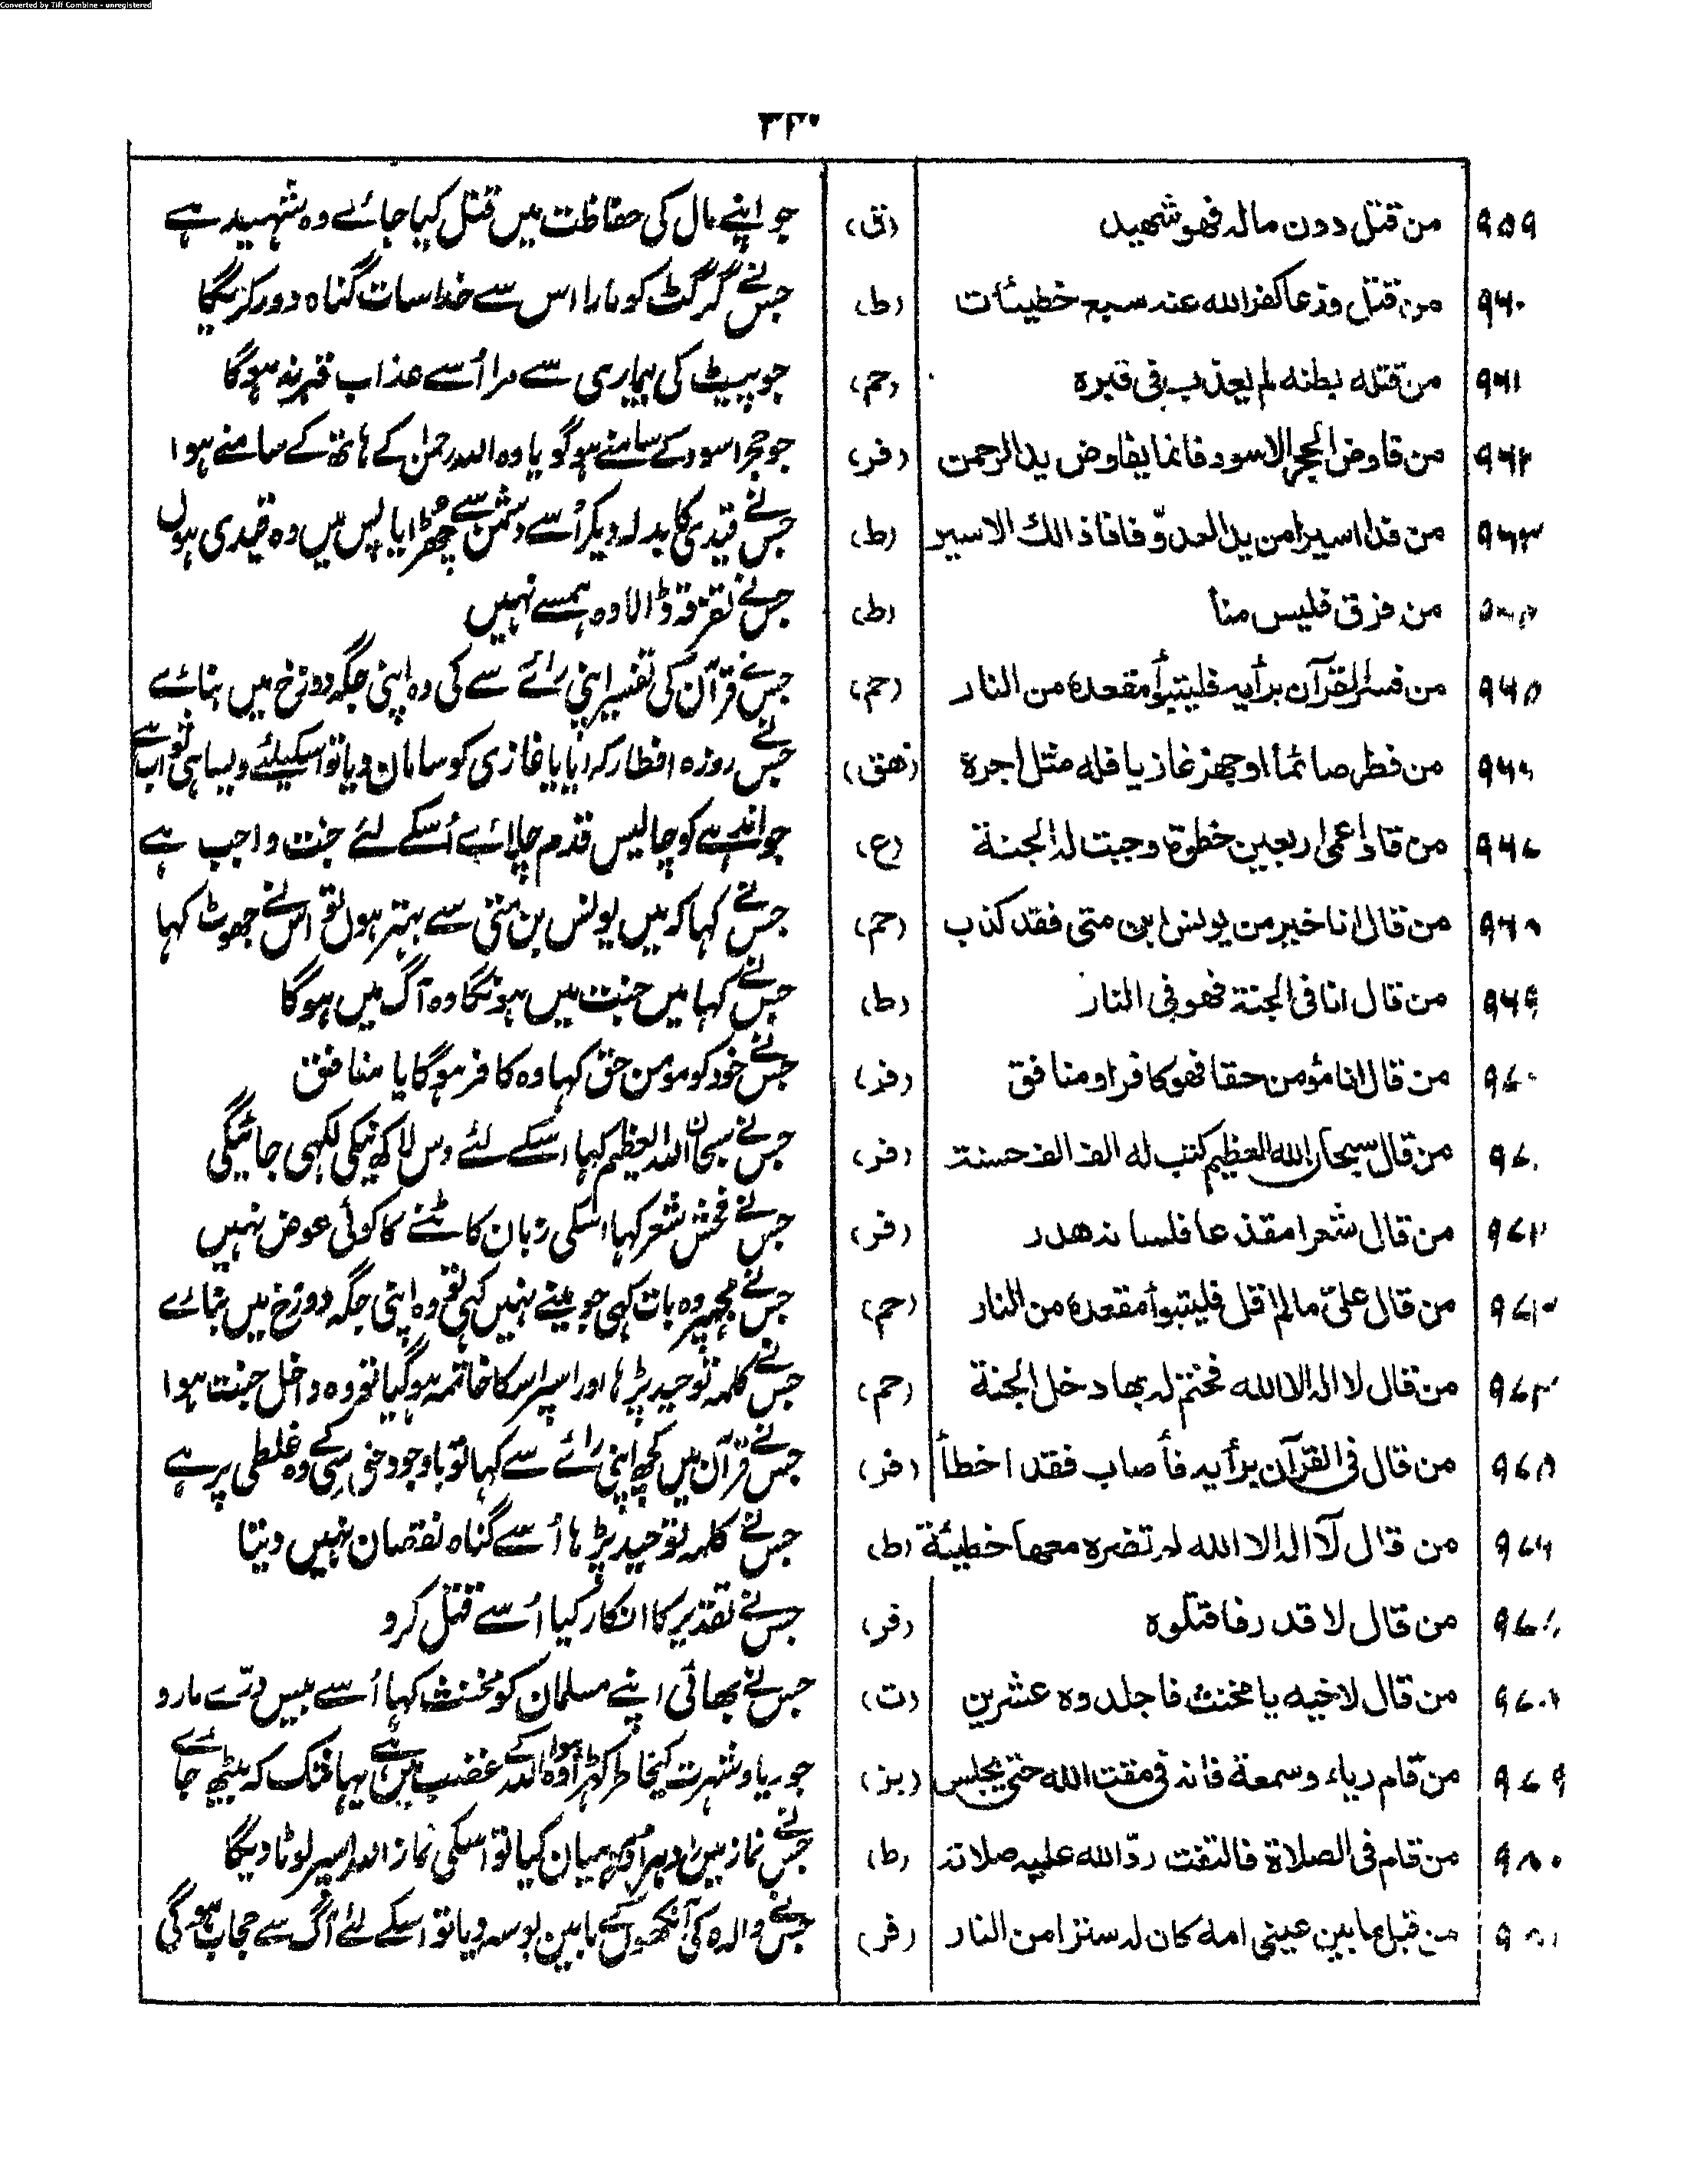 Converted by Tiff Combine - unregistered
۳۲۰
۹۵۹ من قتل دون ماله فهو شهيد (ق) جو اپنے مال کی حفاظت میں قتل کیا جائے وہ شہید ہے
۹۶۰ من قتل وزغا كفر الله عنه سبع خطيئات (ط) جسنے گرگٹ کو مارا اس سے خدا سات گناہ دور کریگا
۹۶۱ من قتله بطنه لم يعذب فى قبره (حم) جو پیٹ کی بیماری سے مرا اُسے عذاب قبر نہ ہوگا
۹۶۲ من فاوض الحجر الاسود فانما يفاوض يد الرحمن (فر) جو حجر اسود کے سامنے ہو گویا وہ اللہ رحمٰن کے ہاتھ کے سامنے ہوا
۹۶۳ من فدا اسيرا من يد العدوّ فانا ذالك الاسير (ط) جسنے قیدی کا بدلہ دیکر اُسے دشمن سے چھڑایا پس میں وہ قیدی ہوں
من فرق فليس منا (ط) جسنے تفرقہ ڈالا وہ ہمسے نہیں
۹۶۵ من فسر القرآن برأيه فليتبوأ مقعده من النار (حم) جسنے قرآن کی تفسیر اپنی رائے سے کی وہ اپنی جگہ دوزخ میں بنائے
۹۶۶ من فطر صائما او جهز غازيا فله مثل اجره (هق) جسنے روزہ افطار کرایا یا غازی کو سامان دیا تو اسکیلئے ویسا ہی ثواب ہے
۹۶۷ من قاد اعمى اربعين خطوة وجبت له الجنة (ع) جو اندہے کو چالیس قدم چلائے اُسکے لئے جنت واجب ہے
۹۶۸ من قال انا خير من يونس ابن متى فقد كذب (حم) جسنے کہا کہ میں یونس بن متی سے بہتر ہوں تو اسنے جھوٹ کہا
۹۶۹ من قال انا فى الجنة فهو فى النار (ط) جسنے کہا میں جنت میں ہونگا وہ آگ میں ہوگا
۹۷۰ من قال انا مؤمن حقا فهو كافر او منافق (فر) جسنے خود کو مومن حق کہا وہ کافر ہوگا یا منافق
۹۷۱ من قال سبحان الله العظيم كتب له الف الف حسنة (فر) جسنے سبحان اللہ العظیم کہا اسکے لئے دس لاکھ نیکی لکھی جائیگی
۹۷۲ من قال شعرا مقذعا فلسانه هدر (فر) جسنے فحش شعر کہا اسکی زبان کاٹنے کا کوئی عوض نہیں
۹۷۳ من قال علىّ ما لم اقل فليتبوأ مقعده من النار (حم) جسنے مجھپر وہ بات کہی جو مینے نہیں کہی تو وہ اپنی جگہ دوزخ میں بنائے
۹۷۴ من قال لا اله الا الله فختم له بها دخل الجنة (حم) جسنے کلمہ توحید پڑہا اور اسپر اسکا خاتمہ ہوگیا تو وہ داخل جنت ہوا
۹۷۵ من قال فى القرآن برأيه فأصاب فقد اخطأ (فر) جسنے قرآن میں کچھ اپنی رائے سے کہا تو باوجود حق رسی کے وہ غلطی پر ہے
۹۷۶ من قال لآ اله الا الله لم تضره معها خطيئة (ط) جسنے کلمہ توحید پڑہا اُسے گناہ نقصان نہیں دیتا
۹۷۷ من قال لا قدر فاقتلوه (فر) جسنے تقدیر کا انکار کیا اُسے قتل کرو
۹۷۸ من قال لاخيه يا مخنث فاجلدوه عشرين (ت) جسنے بھائی اپنے مسلمان کو مخنث کہا اُسے بیس درّے مارو
۹۷۹ من قام رياء وسمعة فانه فى مقت الله حتى يجلس (بز) جو ریا و شہرت کیخاطر کھڑا ہوا وہ اللہ کے غضب میں ہے یہانتک کہ بیٹھ جائے
۹۸۰ من قام فى الصلاة فالتفت ردّ الله عليه صلاته (ط) جسنے نماز میں ادہر اودہر دہیان کیا تو اسکی نماز اللہ اسپر لوٹا دیگا
۹۸۱ من قبل ما بين عينى امه كان له سترا من النار (فر) جسنے والدہ کی آنکھوں کے مابین بوسہ دیا تو اسکے لئے آگ سے حجاب ہوگی